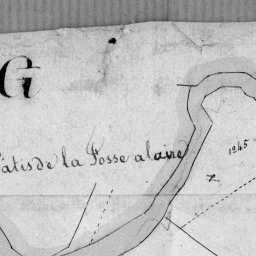 G
Pâtis de la Fosse alaire
1245